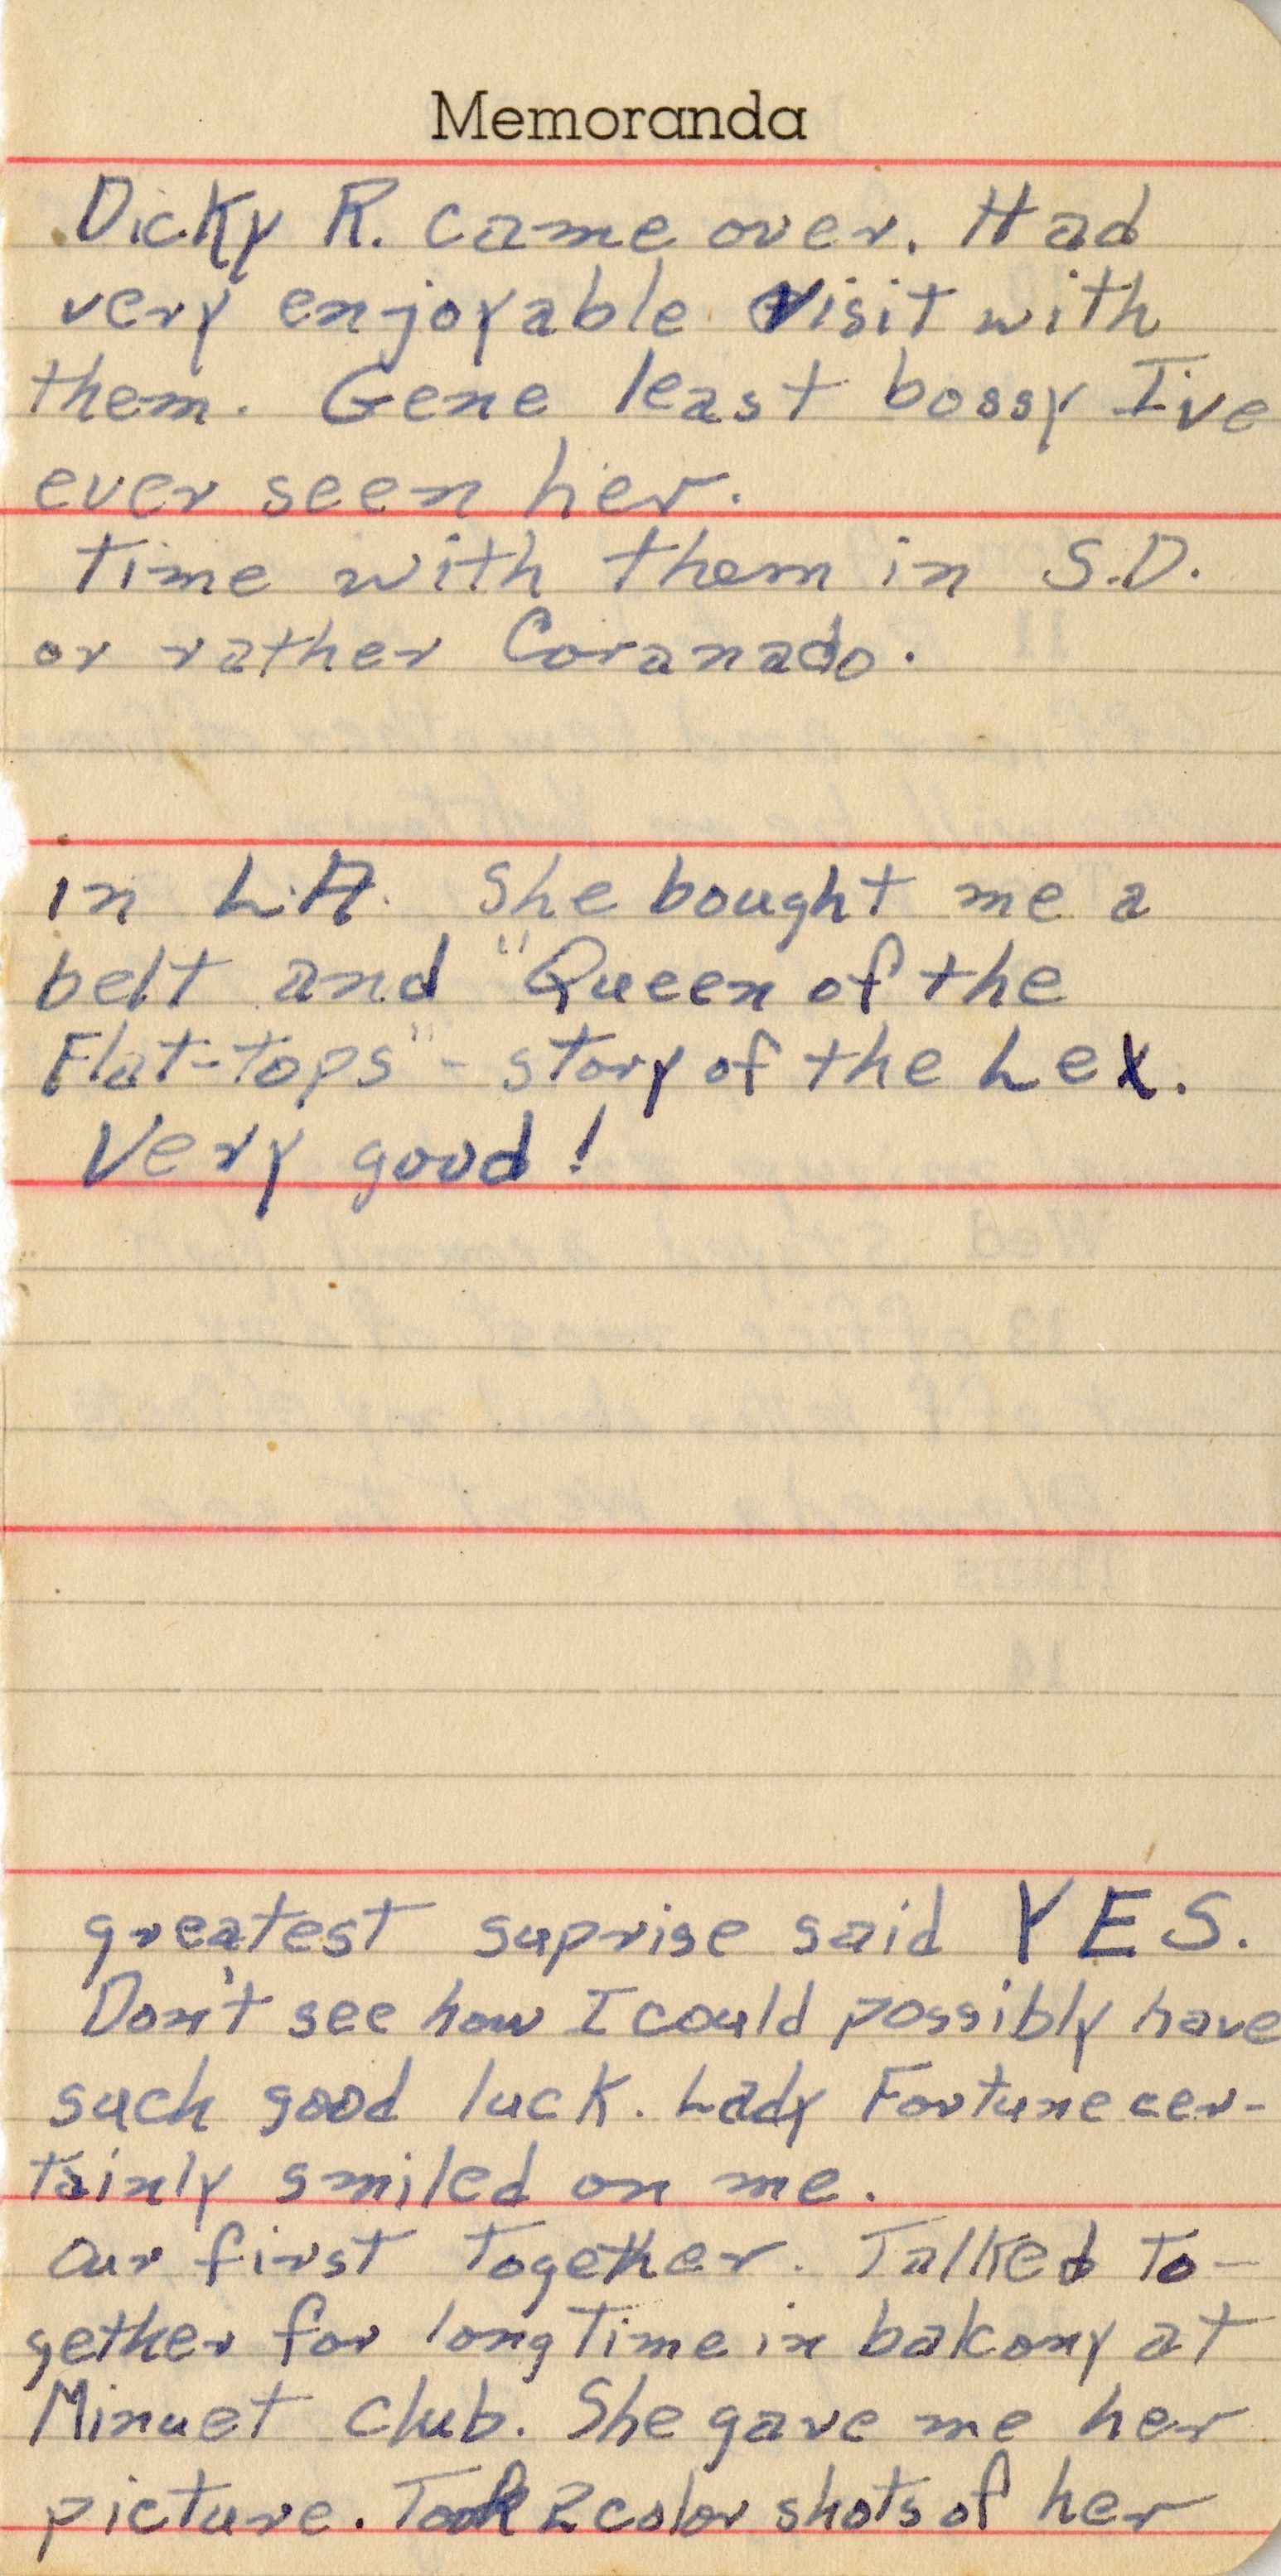 Memoranda
Dicky R. came over. Had
very enjoyable visit with
them. Gene least bossy I've
ever seen her.
Time with them in S.D.
or rather Coranado.
in L.A. She bought me a
belt and "Queen of the
Flat-tops" - story of the Lex.
Very good!
greatest suprise said YES.
Don't see how I could possibly have
such good luck. Lady Fortune cer-
tainly smiled on me.
Our first together. Talked to-
gether for long time in balcony at
Minuet Club. She gave me her
picture. Took 2 color shots of her